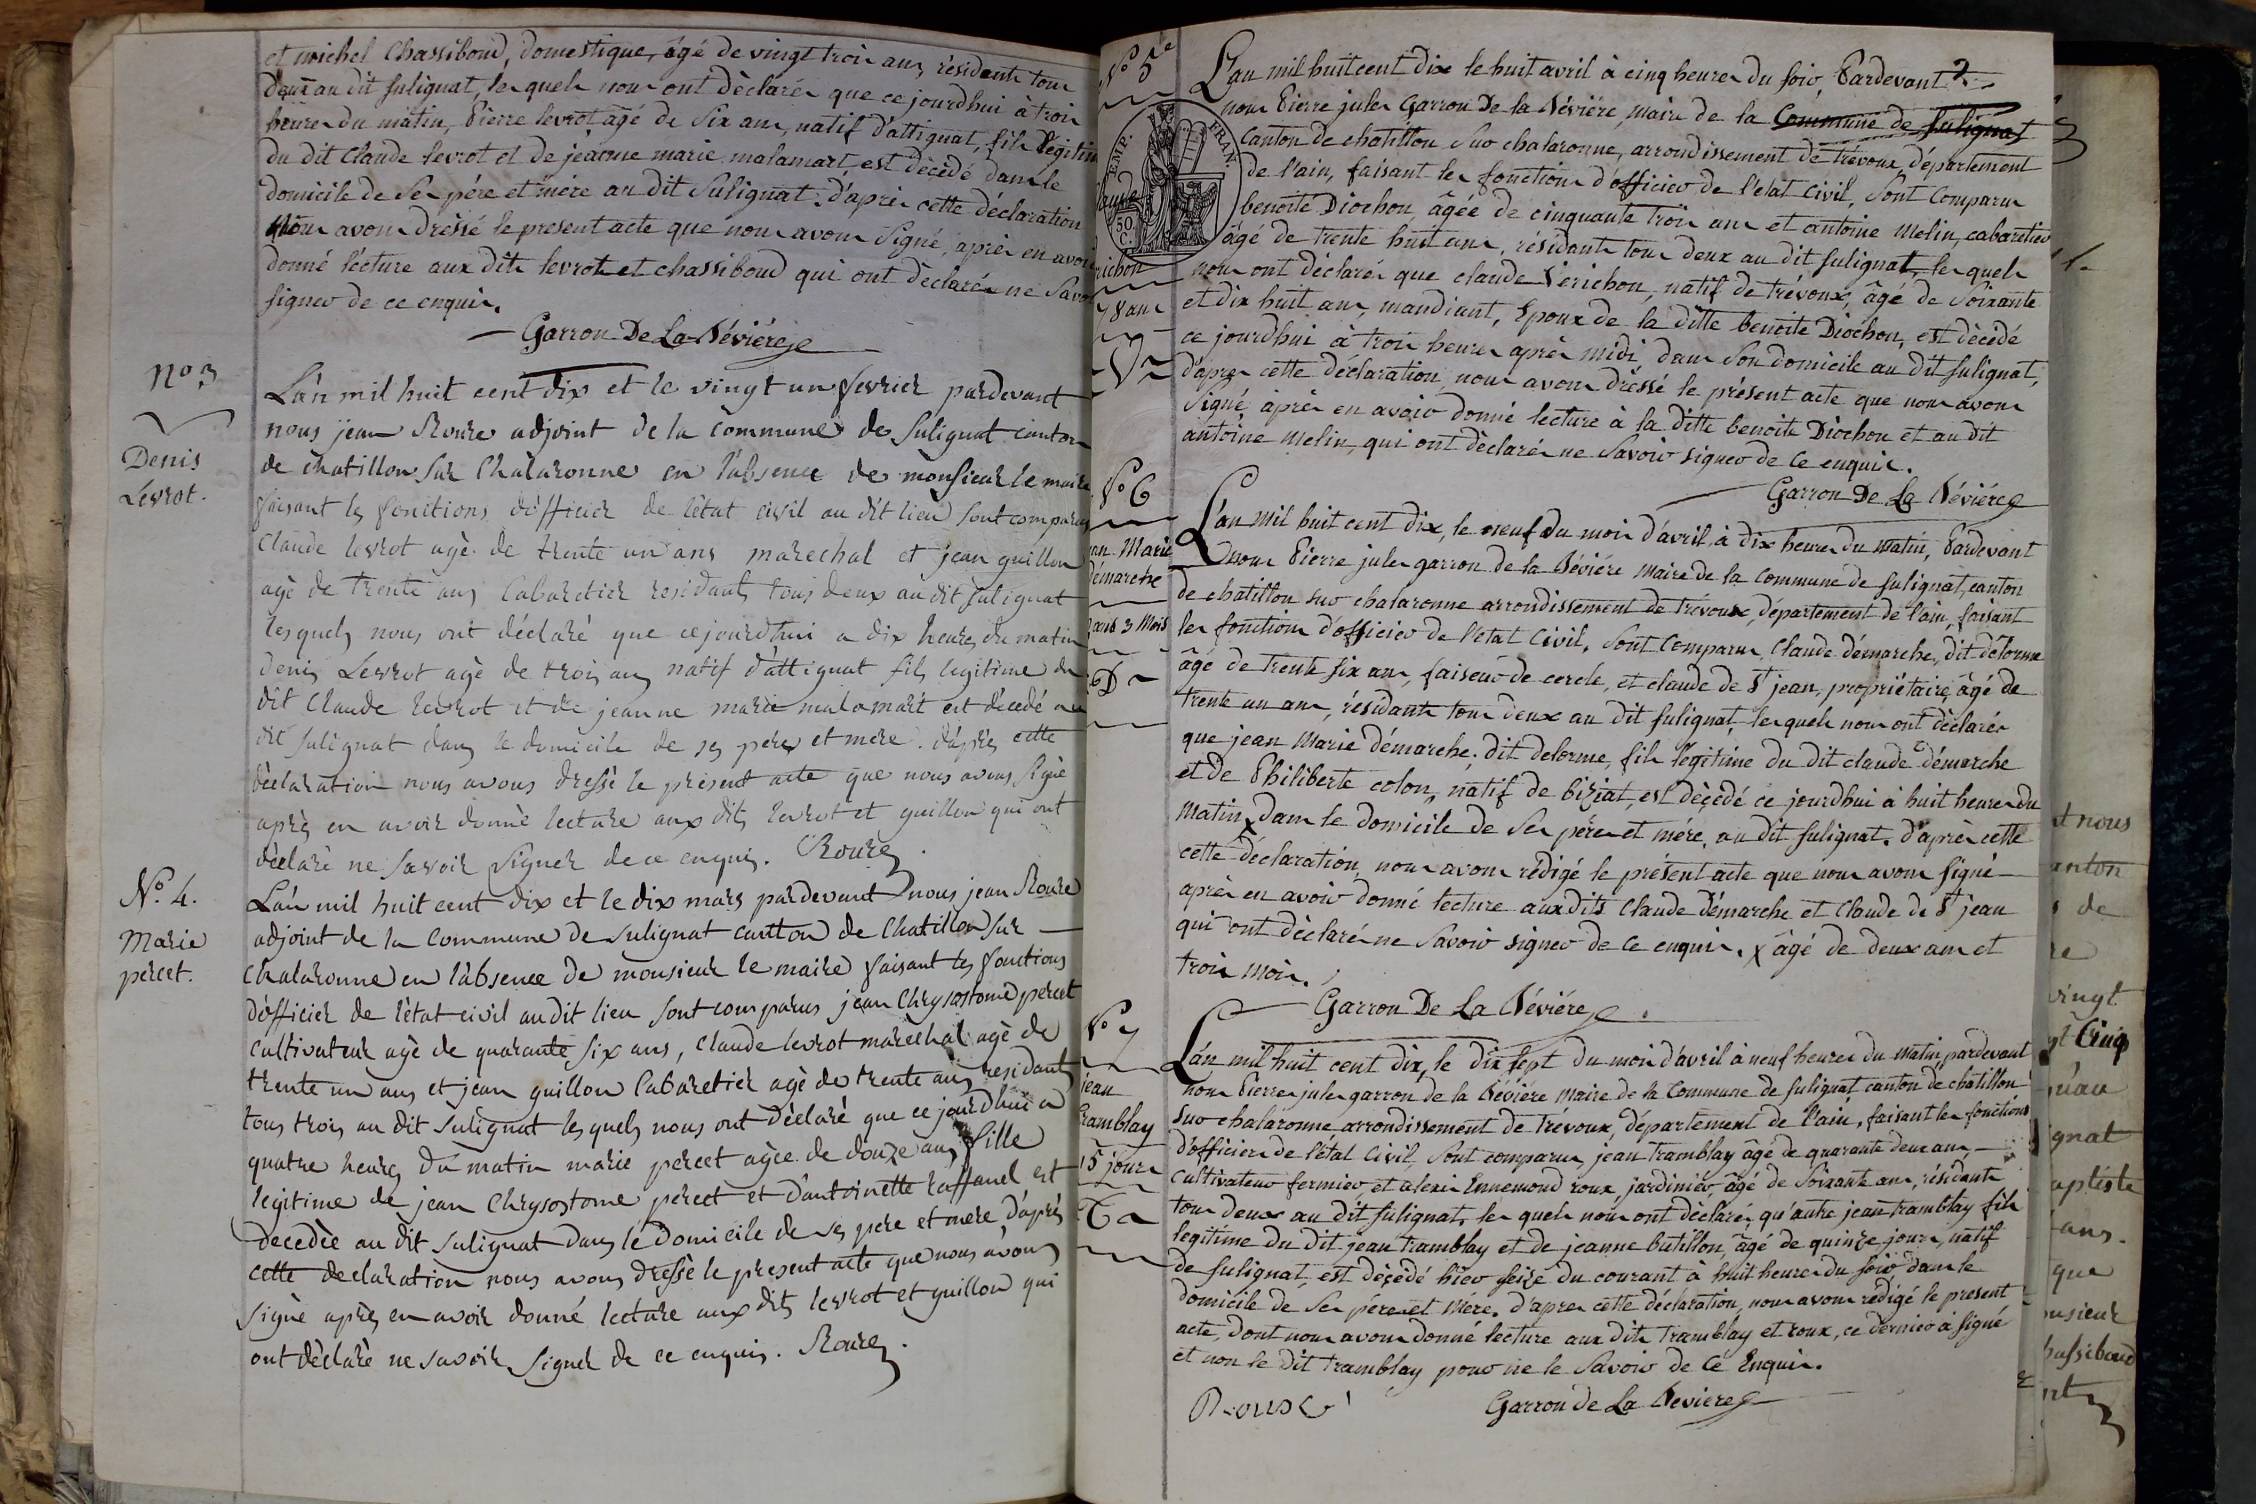 et michel Chassiboud, domestique, âgé de vingt trois ans, résidants tous
deux au dit Sulignat, les quels nous ont déclarés que ce jourdhui à trois
heures du matin, Pierre levrot âgé de Six ans, natif d'attignat, fils légitime
du dit Claude levrot et de jeanne marie malamart, est décédé dans le
domicile de Ses père et mère au dit Sulignat. d'après cette déclaration
Nous avons dressé le present acte que nous avons Signé, après en avoir
donné lécture aux dits levrot et chassiboud qui ont déclarés ne Savoir
signer de ce enquis.
Garron De La Bévière
No 3
Denis
Levrot.
L'an mil huit cent dix et le vingt un fevrier pardevant
nous jean Roure adjoint de la commune de Sulignat canton
de chatillon sur Chalaronne en l'absence de monsieur le maire
faisant les fonctions d'officier de l'état civil au dit lieu sont comparus
Claude levrot agé de trente un ans marechal et jean guillon
agé de trente ans Cabaretier residants tous deux au dit Sulignat
lesquels nous ont déclaré que cejourd'hui a dix heures du matin
denis Levrot agé de trois ans natif d'attignat fils legitime du
dit Claude levrot et de jeanne marie malamart est décedé au
dit Sulignat dans le domicile de ses peres et mere. d'après cette
déclaration nous avons dressé le présent acte que nous avons signé
après en avoir donné lecture aux dits levrot et guillon qui ont
déclaré ne savoir signer de ce enquis. Roure
No. 4.
Marie
percet.
L'an mil huit cent dix et le dix mars pardevant nous jean Roure
adjoint de la commune de Sulignat cantton de Chatillon sur
Chalaronne en l'absence de monsieur le maire faisant les fonctions
d'officier de l'état civil au dit lieu sont comparus jean Chrysostome percet
cultivateur agé de quarante six ans, Claude levrot maréchal agé de
trente un ans et jean guillon Cabaretier agé de trente ans residants
tous trois au dit Sulignat les quels nous ont déclaré que ce jourd'hui a
quatre heures du matin marie percet agée de douze ans fille
legitime de jean Chrysostome percet et d'antoinette raffanel est
decedée au dit Sulignat dans le domicile de ses pere et mere d'après
cette declaration nous avons dressé le present acte que nous avons
signé après en avoir donné lecture aux dits levrot et guillon qui
ont déclaré ne savoir signer de ce enquis. Roure.
No 5e
EMP. FRAN.
50. C.
richon
78 ans
L'an mil huit cent dix le huit avril à cinq heures du soir, Pardevant
nous Pierre jules Garron De la Bévière, maire de la Commune de Sulignat
Canton de chatillon Sur chalaronne, arrondissement de trévoux, département
de l'ain, faisant les fonctions d'officier de l'état Civil, Sont Comparus
benoite Diochon, âgée de cinquante trois ans et antoine Melin, cabaretier
âgé de trente huit ans, résidants tous deux au dit Sulignat, les quels
nous ont déclarés que claude Perichon, natif de trévoux, âgé de Soixante
et dix huit ans, mandiant, Epoux de la ditte benoite Diochon, est décédé
ce jourdhui à trois heures après midi, dans Son domicile au dit Sulignat,
d'après cette déclaration, nous avons dressé le présent acte que nous avons
Signé, après en avoir donné lecture à la ditte benoite Diochon et au dit
antoine Melin, qui ont déclarés ne Savoir signer de ce enquis.
Garron De La Bévière
No 6
an Marie
démarche
2 ans 3 Mois
L'an mil huit cent dix, le neuf du mois d'avril, à dix heures du matin, Pardevant
nous Pierre jules garron de la Bévière Maire de la Commune de Sulignat, canton
de chatillon sur chalaronne arrondissement de trévoux, département de l'ain, faisant
les fonctions d'officier de l'état Civil, Sont Comparus Claude démarche, dit délorme
âgé de trente six ans, faiseur de cercle, et claude de St jean, propriétaire âgé de
trente un ans, résidants tous deux au dit Sulignat, les quels nous ont déclarés
que jean Marie démarche, dit delorme, fils légitime du dit claude démarche
et de Philiberte colon, natif de biziat, est décédé ce jourdhui à huit heures du
Matin x dans le domicile de Ses père et mère, au dit Sulignat. d'après cette
cette déclaration, nous avons rédigé le présent acte que nous avons signé
après en avoir donné lecture aux dits Claude démarche et Claude de St jean
qui ont déclarés ne Savoir signer de ce enquis. x âgé de deux ans et
trois mois.
Garron De La Bévière
No 7
jean
tramblay
15 jours
L'an mil huit cent dix, le dix sept du mois d'avril à neuf heures du matin, pardevant
nous Pierre jules garron de la Bévière Maire de la Commune de Sulignat canton de chatillon
sur chalaronne arrondissement de Trévoux, département de l'ain, faisant les fonctions
d'officier de l'état Civil, Sont comparus, jean tramblay âgé de quarante deux ans,
Cultivateur fermier, et alexis Ennemond roux, jardinier, âgé de Soixante ans, résidants
tous deux au dit Sulignat, les quels nous ont déclarés, qu'autre jean tramblay fils
legitime du dit jean tramblay et de jeanne butillon, âgé de quinze jours, natif
de Sulignat, est décédé hier seize du courant à huit heures du soir dans le
domicile de Ses père et Mère. d'après cette déclaration, nous avons rédigé le present
acte, dont nous avons donné lecture aux dits tramblay et roux, ce dernier à signé
et non le dit tramblay pour ne le Savoir de ce Enquis.
Roux
Garron de La Bévière
t nous
anton
de
vingt
Cinq
ignat
aptiste
ans.
que
onsieur
hassiboud